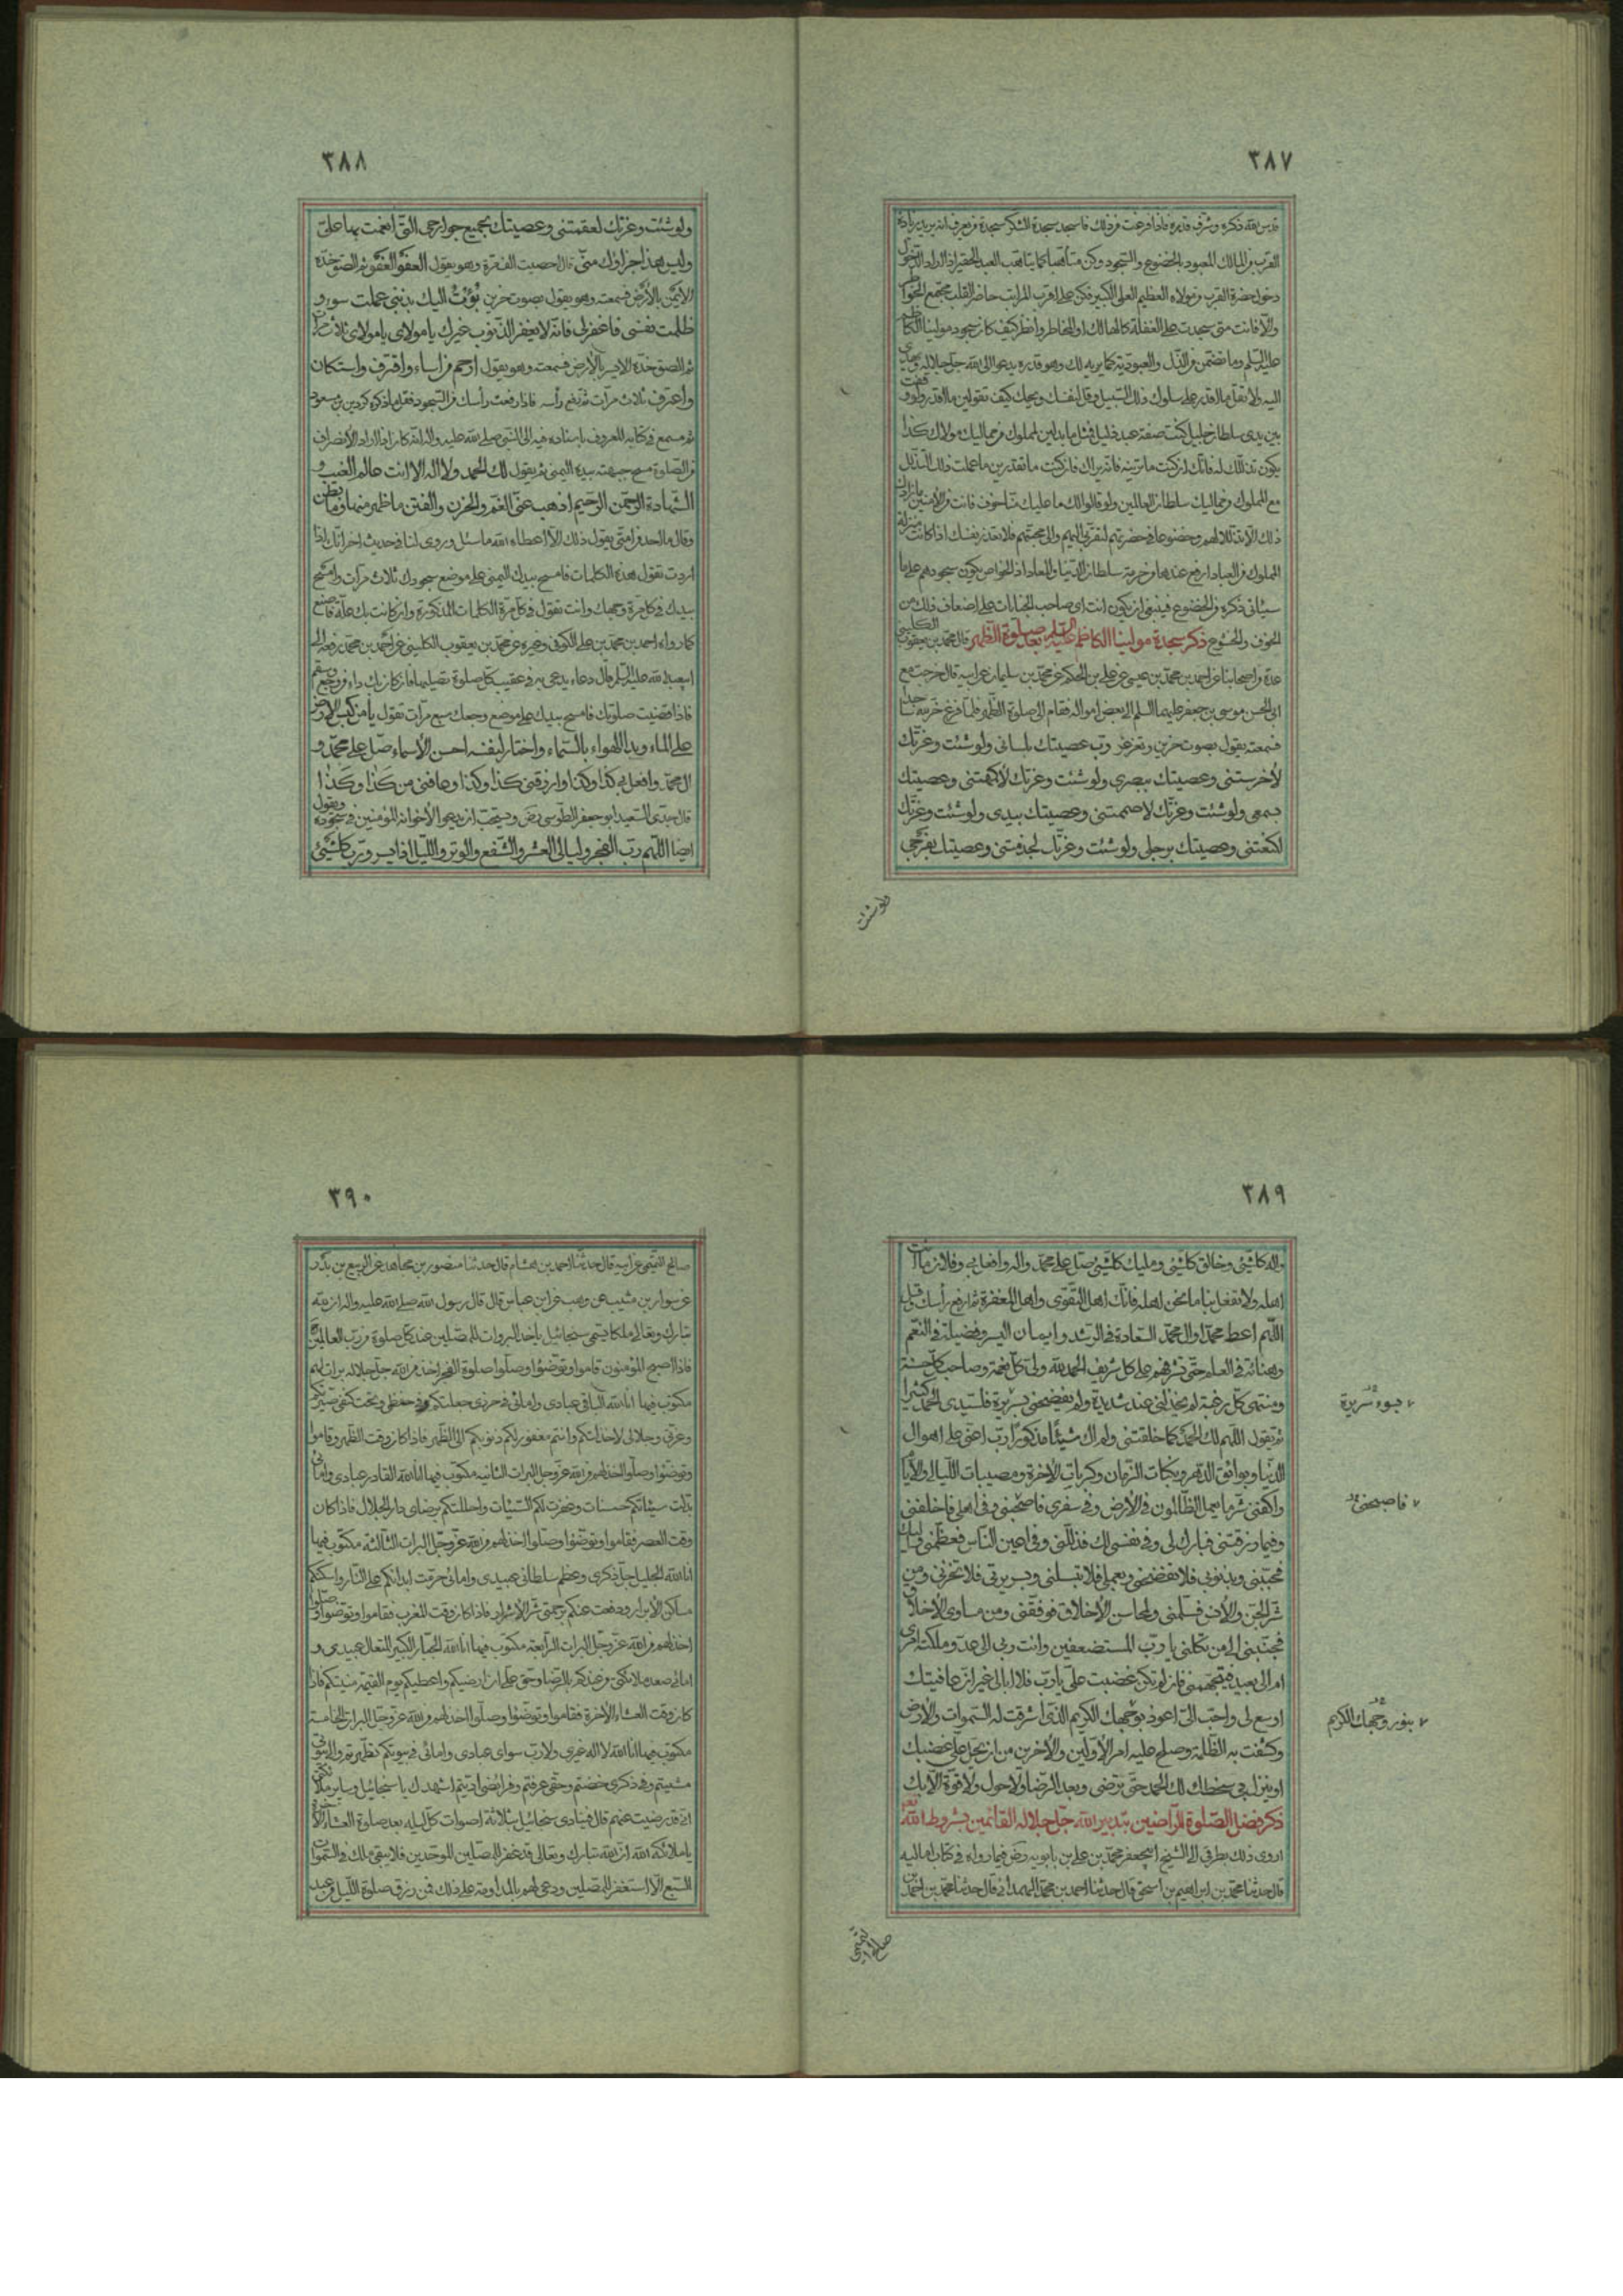 ٣٨٧
قدس الله ذكره وشرف قدره فاذا فرغت من ذلك فاسجد سجدة الشكر سجدة من يعرف انه يريد زيادة
القرب من المالك المعبود بالخضوع والسجود وكن متأهبا كما يتاهب العبد الحقير اذا اراد الدخول
دخول حضرة القرب من مولاه العظيم العلى الكبير فكن على اقرب المراتب حاضر القلب مجتمع الخواطر
والا فانت متى سجدت على الغفلة كالهالك او المخاطر وانظر كيف كان سجود مولينا الكاظم
عليه السلم وما تضمن من الذل والعبودية كما يريه لك وهو قدره يدعو الى الله جل جلاله
اليه ولا تقل ما اقدر على سلوك ذلك السبيل وقل لنفسك ويحك كيف تقولين ما اقدر ولو وقفت
بين يدى سلطان جليل كنت صفة عبد ذليل فمثل ما بدلين لمملوك من مماليك مولاك كذا
يكون تذللك له فانك ان كنت ما ترينه فانه يراك فان كنت ما تقدرين ما عملت ذلك التذلل
مع المملوك ومماليك سلطان العالمين ولو قالوا لك ما عليك منا خوف فانت من الامنين ما زادك
ذلك الا تذللا لهم وخضوعا فى حضرتهم لتقربى اليهم والى محبتهم فلا تعذر نفسك اذا كانت منزلة
المملوك من العباد ارفع عندها من حرمة سلطان الدنيا والمعاد اذ الخواص يكون سجودهم على ما
سياتى ذكره من الخضوع فينبغى ان يكون انت اى صاحب الجنايات على اضعاف ذلك من
الخوف والخشوع ذكر سجدة مولينا الكاظم عليه السلم بعد صلوة الظهر قال محمد بن يعقوب الكلينى
عدة من اصحابنا عن احمد بن محمد بن عيسى عن على بن الحكم عن محمد بن سليمان عن ابيه قال خرجت مع
ابى الحسن موسى بن جعفر عليهما السلم الى بعض امواله فقام الى صلوة الظهر فلما فرغ خر لله ساجدا
فسمعته يقول بصوت حزين وتغرغر رب عصيتك بلسانى ولو شئت وعزتك
لاخرستنى وعصيتك ببصرى ولو شئت وعزتك لاكمهتنى وعصيتك
بسمعى ولو شئت وعزتك لاصممتنى وعصيتك بيدى ولو شئت وعزتك
لكنعتنى وعصيتك برجلى ولو شئت وعزتك لجذمتنى وعصيتك بفرجى
ولو شئت
٣٨٨
ولو شئت وعزتك لعقمتنى وعصيتك بجميع جوارحى التى انعمت بها على
وليس هذا جزاؤك منى قال احصيت الف مرة وهو يقول العفو العفو ثم الصق خده
الايمن بالارض فسمعته وهو يقول بصوت حزين بؤت اليك بذنبى عملت سوء و
ظلمت نفسى فاغفر لى فانه لا يغفر الذنوب غيرك يا مولاى يا مولاى ثلاث مرات
ثم الصق خده الايسر بالارض فسمعته وهو يقول ارحم من اساء واقترف واستكان
واعترف ثلاث مرات ثم رفع رأسه فاذا رفعت رأسك من السجود فقل ما ذكره كردين بن مسمع
فى كتابه المعروف باسناده فيه الى النبى صلى الله عليه واله انه كان اذا اراد الانصراف
من الصلوة مسح جبهته بيده اليمنى ثم يقول لك الحمد ولا اله الا انت عالم الغيب و
الشهادة الرحمن الرحيم اذهب عنى الغم والحزن والفتن ما ظهر منها وما بطن
وقال ما احد من امتى يقول ذلك الا اعطاه الله ما سئل وروى لنا فى حديث اخر انك اذا
اردت تقول هذه الكلمات فامسح بيدك اليمنى على موضع سجودك ثلاث مرات وامسح
بيدك فى كل مرة وجهك وانت تقول فى كل مرة الكلمات المذكورة وان كانت بك علة فاصنع
كما رواه احمد بن محمد بن على الكوفى وغيره عن محمد بن يعقوب الكلينى عن احمد بن محمد رفعه الى
ابى عبد الله عليه السلم قال دعاء يدعى به فى عقيب كل صلوة تصليها فان كان بك داء من وجع وسقم
فاذا قضيت صلوتك فامسح بيدك على موضع وجعك سبع مرات تقول يا من كبس الارض
على الماء وسد الهواء بالسماء واختار لنفسه احسن الاسماء صل على محمد و
ال محمد وافعل بى كذا وكذا وارزقنى كذا وكذا وعافنى من كذا وكذا
قال جدى السعيد ابو جعفر الطوسى رض ويستحب ان يدعو لاخوانه المؤمنين فى سجوده ويقول
ايضا اللهم رب الفجر وليالى العشر والشفع والوتر والليل اذا يسر ورب كل شيئ
٣٨٩
واله كل شيئ وخالق كل شيئ ومليك كل شيئ صل على محمد واله وافعل بى وفلان ما انت
اهله ولا تفعل بنا ما نحن اهله فانك اهل التقوى واهل المغفرة ثم ارفع رأسك وقل
اللهم اعط محمدا وال محمد السعادة فى الرشد وايمان اليسر وفضيلة فى النعم
وهناءة فى العلم حتى تشرفهم على كل شريف الحمد لله ولى كل نعمة وصاحب كل حسنة
ومنتهى كل رغبة لم يخذلنى عند شديدة ولم يفضحنى بسريرة فلسيدى الحمد كثيرا
ثم يقول اللهم لك الحمد كما خلقتنى ولم اك شيئا مذكورا رب اعنى على اهوال
الدنيا وبوائق الدهر ونكبات الزمان وكربات الاخرة ومصيبات الليالى والايام
واكفنى شر ما يعمل الظالمون فى الارض وفى سفرى فاصحبنى وفى اهلى فاخلفنى
وفيما رزقتنى فبارك لى وفى نفسى لك فذللنى وفى اعين الناس فعظمنى واليك
فحببنى وبذنوبى فلا تفضحنى وبعملى فلا تبسلنى وبسريرتى فلا تخزنى ومن
شر الجن والانس فسلمنى ولمحاسن الاخلاق فوفقنى ومن مساوى الاخلاق
فجنبنى الى من تكلنى يا رب المستضعفين وانت ربى الى عدو ملكته امرى
ام الى بعيد فيتجهمنى فان لم تكن غضبت على يا رب فلا ابالى غير ان عافيتك
اوسع لى واحب الى اعوذ بوجهك الكريم الذى اشرقت له السموات والارض
وكشفت به الظلمة وصلح عليه امر الاولين والاخرين من ان يحل على غضبك
او ينزل بى سخطك لك الحمد حتى ترضى وبعد الرضا ولا حول ولا قوة الا بك
ذكر فضل الصلوة للراضين بتدبير الله جل جلاله القائمين بشروط الله
اروى ذلك بطرقى الى الشيخ ابى جعفر محمد بن على بن بابويه رض فيما رواه فى كتاب اماليه
قال حدثنا محمد بن ابراهيم بن اسحق قال حدثنا احمد بن محمد الهمدانى قال حدثنا محمد بن احمد بن
صالح التميمى
بسوء سريرة
فاصبحنى
بنور وجهك الكريم
٣٩٠
صالح التميمى عن ابيه قال حدثنا احمد بن هشام قال حدثنا منصور بن مجاهد عن الربيع بن بدر
عن سوار بن منيب عن وهب عن ابن عباس قال قال رسول الله صلى الله عليه واله ان لله
تبارك وتعالى ملكا يسمى سخائيل ياخذ البروات للمصلين عند كل صلوة من رب العالمين
فاذا اصبح المؤمنون قاموا وتوضئوا وصلوا صلوة الفجر اخذ من الله جل جلاله براة لهم
مكتوب فيها انا الله الباقى عبادى وامائى فى حرزى جعلتكم وفى حفظى وتحت كنفى صيرتكم
وعزتى وجلالى لا خذلتكم وانتم مغفور لكم ذنوبكم الى الظهر فاذا كان وقت الظهر وقاموا
وتوضئوا وصلوا اخذ لهم من الله عز وجل البراة الثانية مكتوب فيها انا الله القادر عبادى وامائى
بدلت سيئاتكم حسنات وغفرت لكم السيئات واحللتكم برضاى دار الجلال فاذا كان
وقت العصر فقاموا وتوضئوا وصلوا اخذ لهم من الله عز وجل البراة الثالثة مكتوب فيها
انا الله الجليل جل ذكرى وعظم سلطانى عبيدى وامائى حرمت ابدانكم على النار واسكنتكم
مساكن الابرار ودفعت عنكم برحمتى شر الاشرار فاذا كان وقت المغرب فقاموا وتوضئوا وصلوا
اخذ لهم من الله عز وجل البراة الرابعة مكتوب فيها انا الله الجبار الكبير المتعال عبيدى و
امائى صعد ملائكتى من عندكم بالرضا وحق على ان ارضيكم واعطيكم يوم القيمة منيتكم فاذا
كان وقت العشاء الاخرة فقاموا وتوضئوا وصلوا اخذ لهم من الله عز وجل البراة الخامسة
مكتوب فيها انا الله لا اله غيرى ولا رب سواى عبادى وامائى فى بيوتكم تطهرتم والى بيوتى
مشيتم وفى ذكرى خضتم وحقى عرفتم وفرائضى اديتم اشهدك يا سخائيل وساير ملائكتى
انى قد رضيت عنهم قال فينادى سخائيل بثلاثة اصوات كل ليلة بعد صلوة العشاء الاخرة
يا ملائكة الله ان الله تبارك وتعالى قد غفر للمصلين الموحدين فلا يبقى ملك فى السموات
السبع الا استغفر للمصلين ودعى لهم بالمداومة على ذلك فمن رزق صلوة الليل من عبد